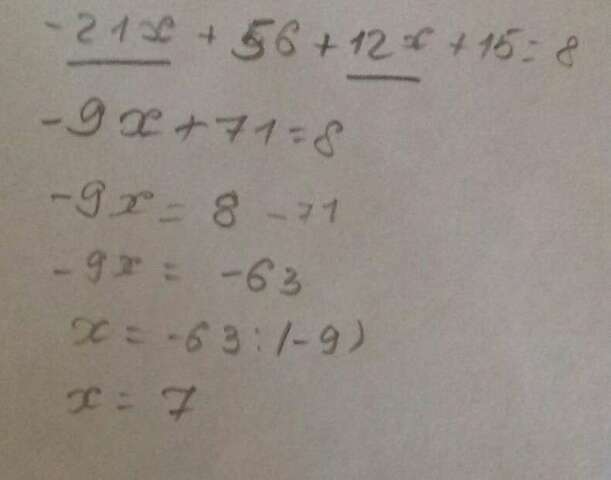 -21x + 56 + 12x + 15 = 8
-9x + 71 = 8
-9x = 8 - 71
-9x = -63
x = -63 : (-9)
x = 7